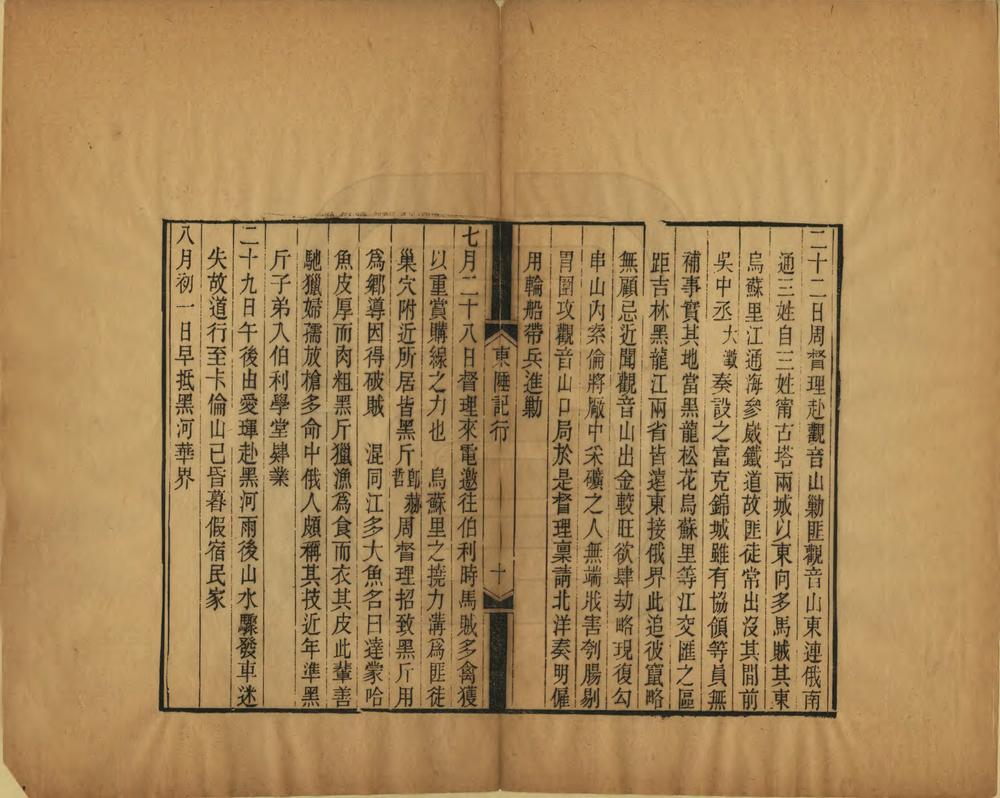 二十二日周督理赴觀音山勦匪觀音山東連俄南
通三姓自三姓甯古塔兩城以東向多馬賊其東
烏蘇里江通海參崴鐵道故匪徒常出沒其間前
吳中丞大澂奏設之富克錦城雖有協領等員無
補事實其地當黑龍松花烏蘇里等江交匯之區
距吉林黑龍江兩省皆達東接俄界此追彼竄略
無顧忌近聞觀音山出金較旺欲肆劫略現復勾
串山內索倫將廠中采礦之人無端戕害刳腸剔
胃圍攻觀音山口局於是督理稟請北洋奏明僱
用輪船帶兵進勦
東陲記行
十
七月二十八日督理來電邀往伯利時馬賊多禽獲
以重賞購線之力也 烏蘇里之撓力溝爲匪徒
巢穴附近所居皆黑斤郎赫哲周督理招致黑斤用
爲鄉導因得破賊 混同江多大魚名曰達蒙哈
魚皮厚而肉粗黑斤獵漁爲食而衣其皮此輩善
馳獵婦孺放槍多命中俄人頗稱其技近年準黑
斤子弟入伯利學堂肄業
二十九日午後由愛琿赴黑河雨後山水驟發車迷
失故道行至卡倫山已昏暮假宿民家
八月初一日早抵黑河華界